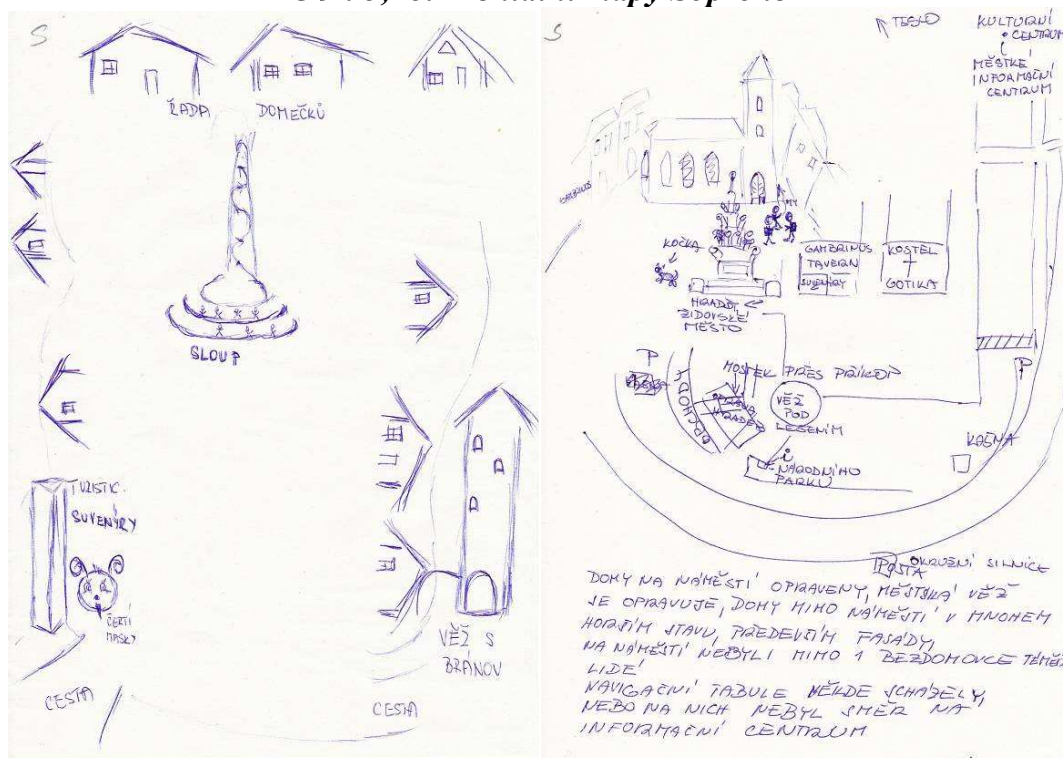 S
ŘADA DOMEČKŮ
SLOUP
TURISTIC.
SUVENÝRY
ČERTÍ
MASKY
VĚŽ S
BRÁNOV
CESTA
CESTA
S
TESCO
KULTURNÍ
CENTRUM
i
MĚSTKÉ
INFORMAČNÍ
CENTRUM
GAMBRINUS
MY
KOČKA
GAMBRINUS
TAVERN
SUVENÝRY
KOSTEL
GOTIKA
HRADBY
ŽIDOVSKÉ
MĚSTO
P
P
MOSTEK PŘES PŘÍKOP
OBCHODY
VĚŽ
POD
LEŠENÍM
KAŠNA
i
NÁRODNÍHO
PARKU
POŠTA
OKRUŽNÍ SILNICE
DOMY NA NÁMĚSTÍ OPRAVENY, MĚSTSKÁ VĚŽ
SE OPRAVUJE, DOMY MIMO NÁMĚSTÍ V MNOHEM
HORŠÍM STAVU, PŘEDEVŠÍM FASÁDY,
NA NÁMĚSTÍ NEBYLI MIMO 1 BEZDOMOVCE TÉMĚŘ
LIDÉ
NAVIGAČNÍ TABULE NĚKDE SCHÁZELY,
NEBO NA NICH NEBYL SMĚR NA
INFORMAČNÍ CENTRUM